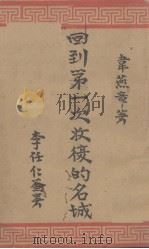 韋燕章
回到第一次收復的名城
李任仁署